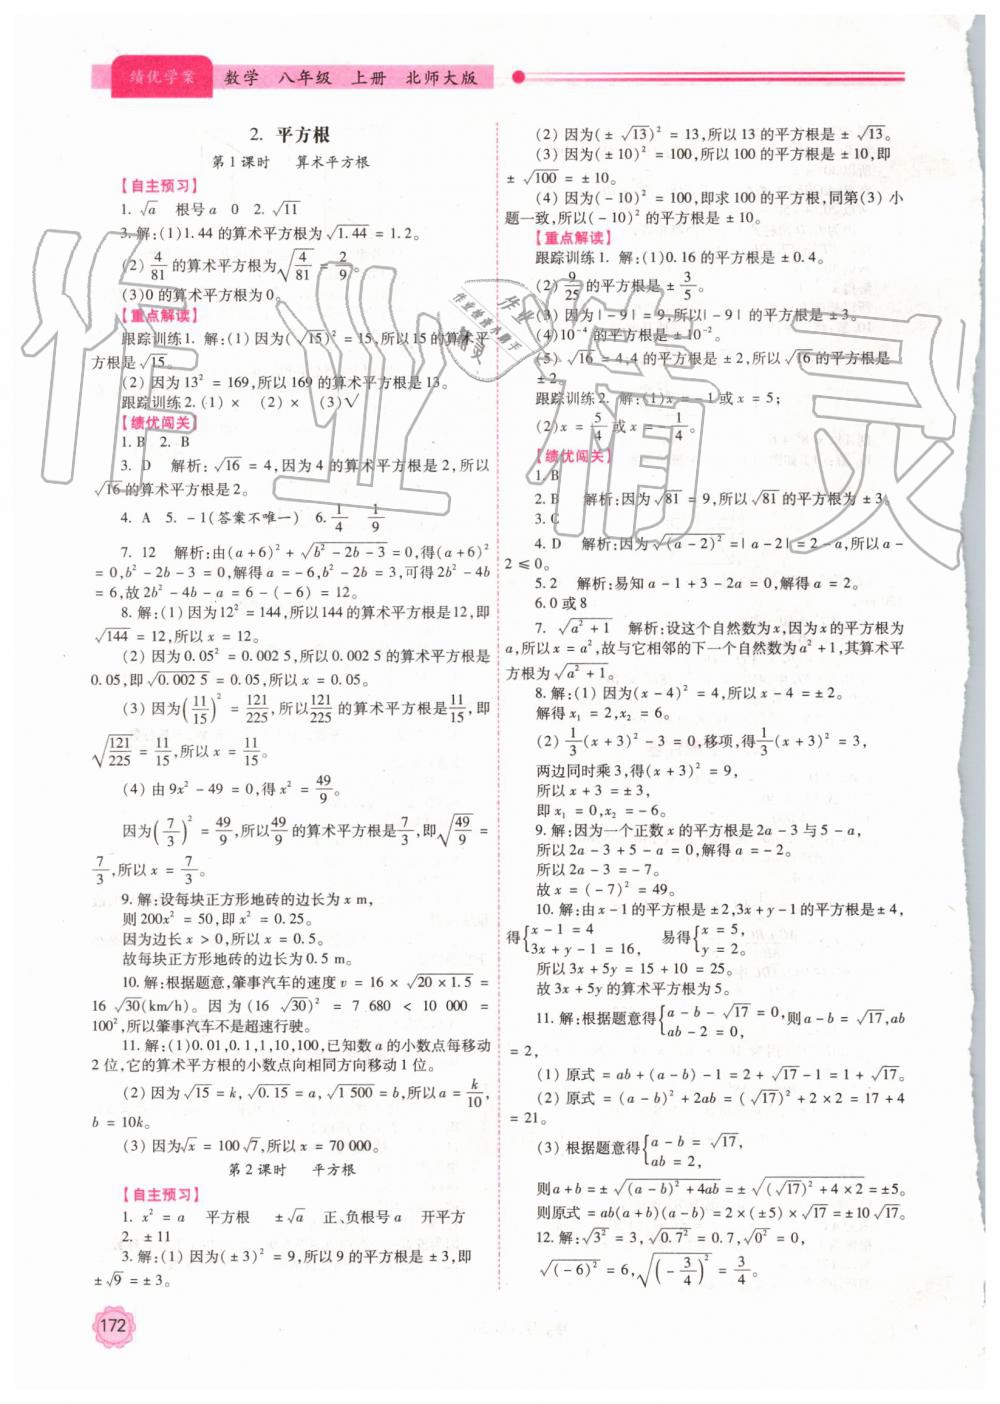 绩优学案 数学 八年级 上册 北师大版
2. 平方根
第1课时 算术平方根
【自主预习】
1. √a 根号a 0 2. √11
3. 解:(1)1.44 的算术平方根为√1.44 = 1.2。
(2) 4/81 的算术平方根为√(4/81) = 2/9。
(3)0 的算术平方根为 0。
【重点解读】
跟踪训练1. 解:(1) 因为(√15)² = 15,所以15 的算术平
方根是√15。
(2) 因为13² = 169,所以 169 的算术平方根是13。
跟踪训练2. (1) × (2) × (3)√
【绩优闯关】
1. B 2. B
3. D 解析:√16 = 4,因为 4 的算术平方根是 2,所以
√16 的算术平方根是2。
4. A 5. -1(答案不唯一) 6. 1/4 1/9
7. 12 解析:由(a+6)² + √(b² - 2b - 3) = 0,得(a+6)²
= 0,b² - 2b - 3 = 0,解得a = -6,b² - 2b = 3,可得2b² - 4b
= 6,故2b² - 4b - a = 6 - (-6) = 12。
8. 解:(1) 因为12² = 144,所以144 的算术平方根是12,即
√144 = 12,所以 x = 12。
(2) 因为0.05² = 0.002 5,所以0.002 5 的算术平方根是
0.05,即√0.002 5 = 0.05,所以 x = 0.05。
(3) 因为(11/15)² = 121/225,所以121/225 的算术平方根是11/15,即
√(121/225) = 11/15,所以 x = 11/15。
(4) 由 9x² - 49 = 0,得 x² = 49/9。
因为(7/3)² = 49/9,所以49/9 的算术平方根是7/3,即√(49/9) =
7/3,所以 x = 7/3。
9. 解:设每块正方形地砖的边长为 x m,
则 200x² = 50,即 x² = 0.25。
因为边长 x > 0,所以 x = 0.5。
故每块正方形地砖的边长为 0.5 m。
10. 解:根据题意,肇事汽车的速度 v = 16 × √(20 × 1.5) =
16 √30(km/h)。因为 (16 √30)² = 7 680 < 10 000 =
100²,所以肇事汽车不是超速行驶。
11. 解:(1)0.01,0.1,1,10,100,已知数 a 的小数点每移动
2 位,它的算术平方根的小数点向相同方向移动 1 位。
(2) 因为√15 = k,√0.15 = a,√1 500 = b,所以a = k/10,
b = 10k。
(3) 因为√x = 100√7,所以 x = 70 000。
第2课时 平方根
【自主预习】
1. x² = a 平方根 ±√a 正、负根号a 开平方
2. ±11
3. 解:(1) 因为(±3)² = 9,所以 9 的平方根是 ±3,即
±√9 = ±3。
172
(2) 因为(±√13)² = 13,所以 13 的平方根是 ±√13。
(3) 因为(±10)² = 100,所以 100 的平方根是 ±10,即
±√100 = ±10。
(4) 因为(-10)² = 100,即求 100 的平方根,同第(3) 小
题一致,所以(-10)² 的平方根是 ±10。
【重点解读】
跟踪训练1. 解:(1)0.16 的平方根是 ±0.4。
(2) 9/25 的平方根是 ±3/5。
(3) 因为|-9| = 9,所以|-9| 的平方根是 ±3。
(4)10⁻⁴ 的平方根是 ±10⁻²。
(5) √16 = 4,4 的平方根是 ±2,所以√16 的平方根是
±2。
跟踪训练2. 解:(1)x = -1 或 x = 5;
(2)x = 5/4 或 x = -1/4。
【绩优闯关】
1. B
2. B 解析:因为√81 = 9,所以√81 的平方根为 ±3。
3. C
4. D 解析:因为√((a-2)²) = |a-2| = 2-a,所以 a -
2 ≤ 0。
5. 2 解析:易知 a - 1 + 3 - 2a = 0,解得 a = 2。
6. 0 或8
7. √(a² + 1) 解析:设这个自然数为x,因为x的平方根为
a,所以 x = a²,故与它相邻的下一个自然数为a² + 1,其算术平
方根为√(a² + 1)。
8. 解:(1) 因为(x - 4)² = 4,所以 x - 4 = ±2。
解得 x₁ = 2,x₂ = 6。
(2) 1/3(x + 3)² - 3 = 0,移项,得1/3(x + 3)² = 3,
两边同时乘 3,得(x + 3)² = 9,
所以 x + 3 = ±3,
即 x₁ = 0,x₂ = -6。
9. 解:因为一个正数 x 的平方根是2a - 3 与 5 - a,
所以 2a - 3 + 5 - a = 0,解得 a = -2。
所以 2a - 3 = -7。
故 x = (-7)² = 49。
10. 解:由 x - 1 的平方根是 ±2,3x + y - 1 的平方根是±4,
得{x - 1 = 4 3x + y - 1 = 16, 易得{x = 5, y = 2。
所以 3x + 5y = 15 + 10 = 25。
故 3x + 5y 的算术平方根为 5。
11. 解:根据题意得{a - b - √17 = 0, ab - 2 = 0, 则a - b = √17,ab
= 2,
(1) 原式 = ab + (a - b) - 1 = 2 + √17 - 1 = 1 + √17。
(2) 原式 = (a - b)² + 2ab = (√17)² + 2 × 2 = 17 + 4
= 21。
(3) 根据题意得{a - b = √17, ab = 2,
则a + b = ±√((a-b)² + 4ab) = ±√((√17)² + 4 × 2) = ±5。
则原式 = ab(a + b)(a - b) = 2 × (±5) × √17 = ±10 √17。
12. 解:√3² = 3,√0.7² = 0.7,√0² = 0,
√((-6)²) = 6,√((-3/4)²) = 3/4。